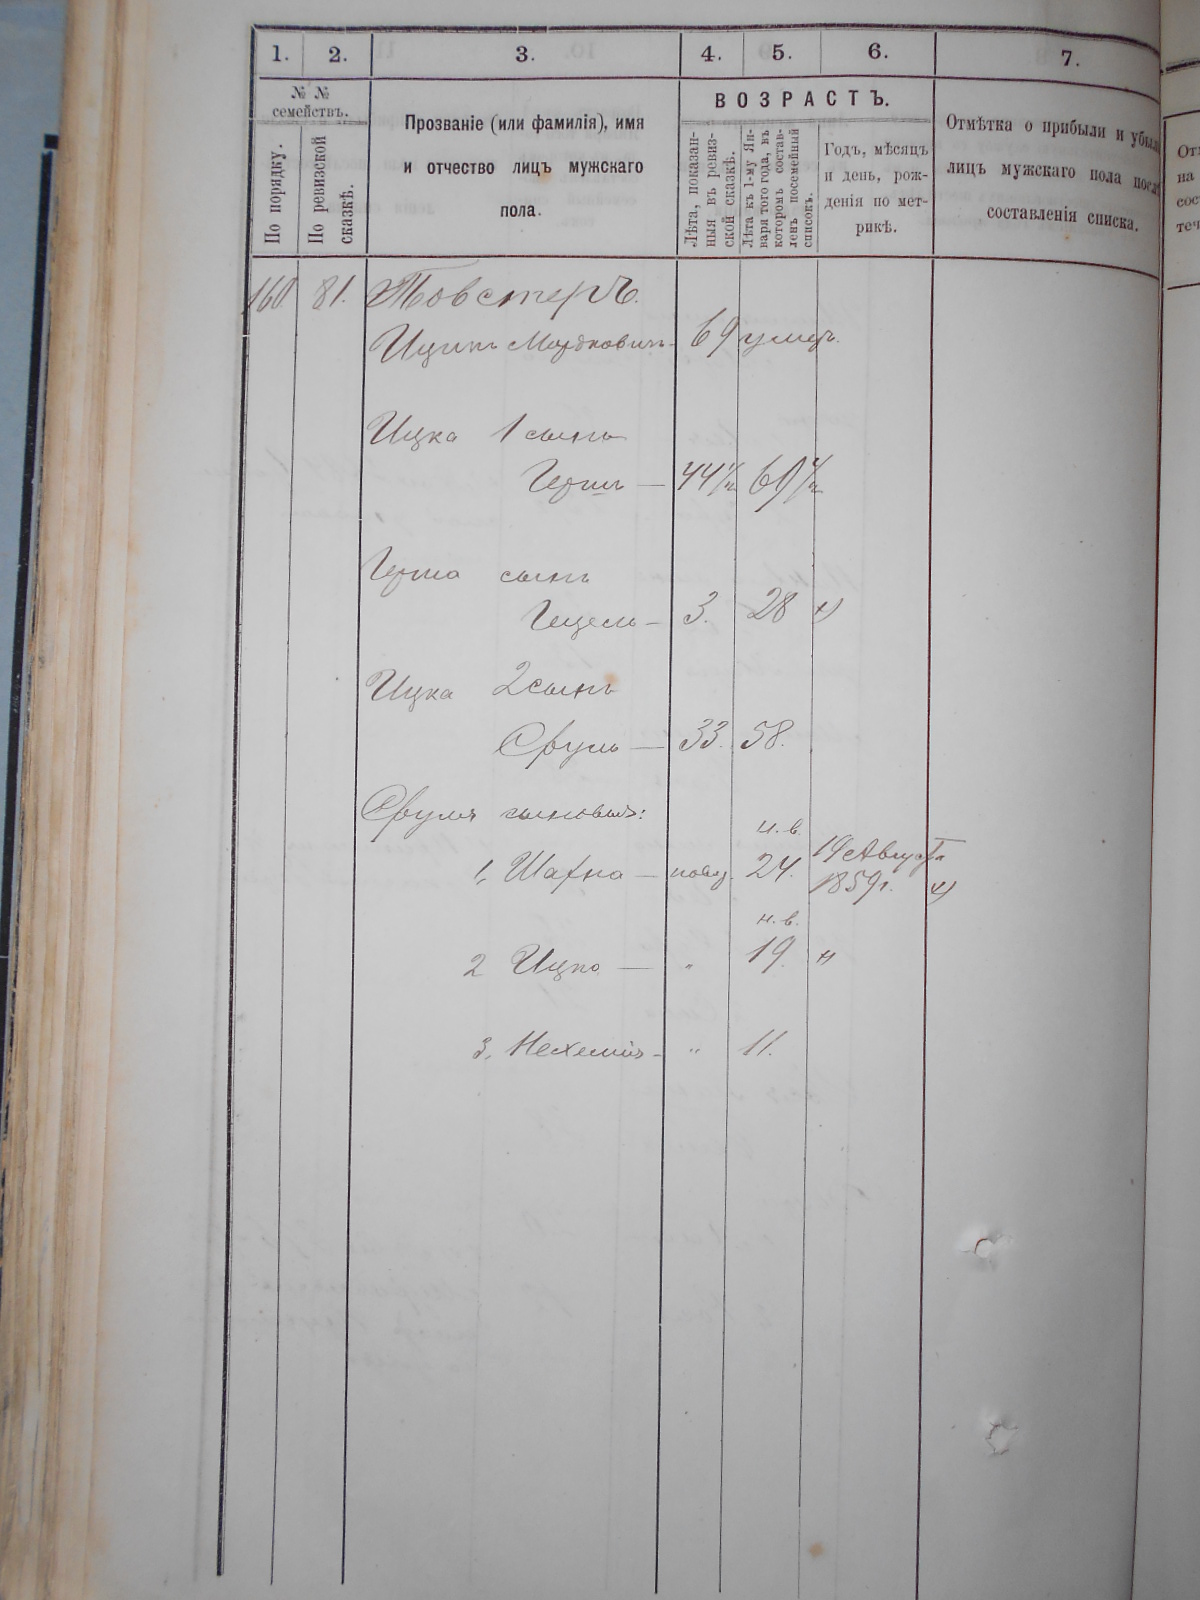 1. 2. 3. 4. 5. 6. 7.
№ №
семействъ.
По порядку.
По ревизской
сказкѣ.
Прозваніе (или фамилія), имя
и отчество лицъ мужскаго
пола.
ВОЗРАСТЪ.
Лѣта, показан-
ныя въ ревиз-
ской сказкѣ.
Лѣта къ 1-му Ян-
варя того года, въ
которомъ состав-
ленъ посемейный
списокъ.
Годъ, мѣсяцъ
и день, рож-
денія по мет-
рикѣ.
Отмѣтка о прибыли и убыли
лицъ мужскаго пола послѣ
составленія списка.
160 81. Товстеръ.
Ицикъ Мордковичъ - 69 умеръ.
Ицка 1 сынъ
Гершъ — 44 ½ 69 ½
Герша сынъ
Гецель - 3. 28
Ицка 2 сынъ
Сруль — 33. 58.
Сруля сыновья:
н. в.
1, Шахна — новор. 24. 19 Августа
1859 г.
н. в.
2 Ицко — " 19.
3, Нехемія - " 11.